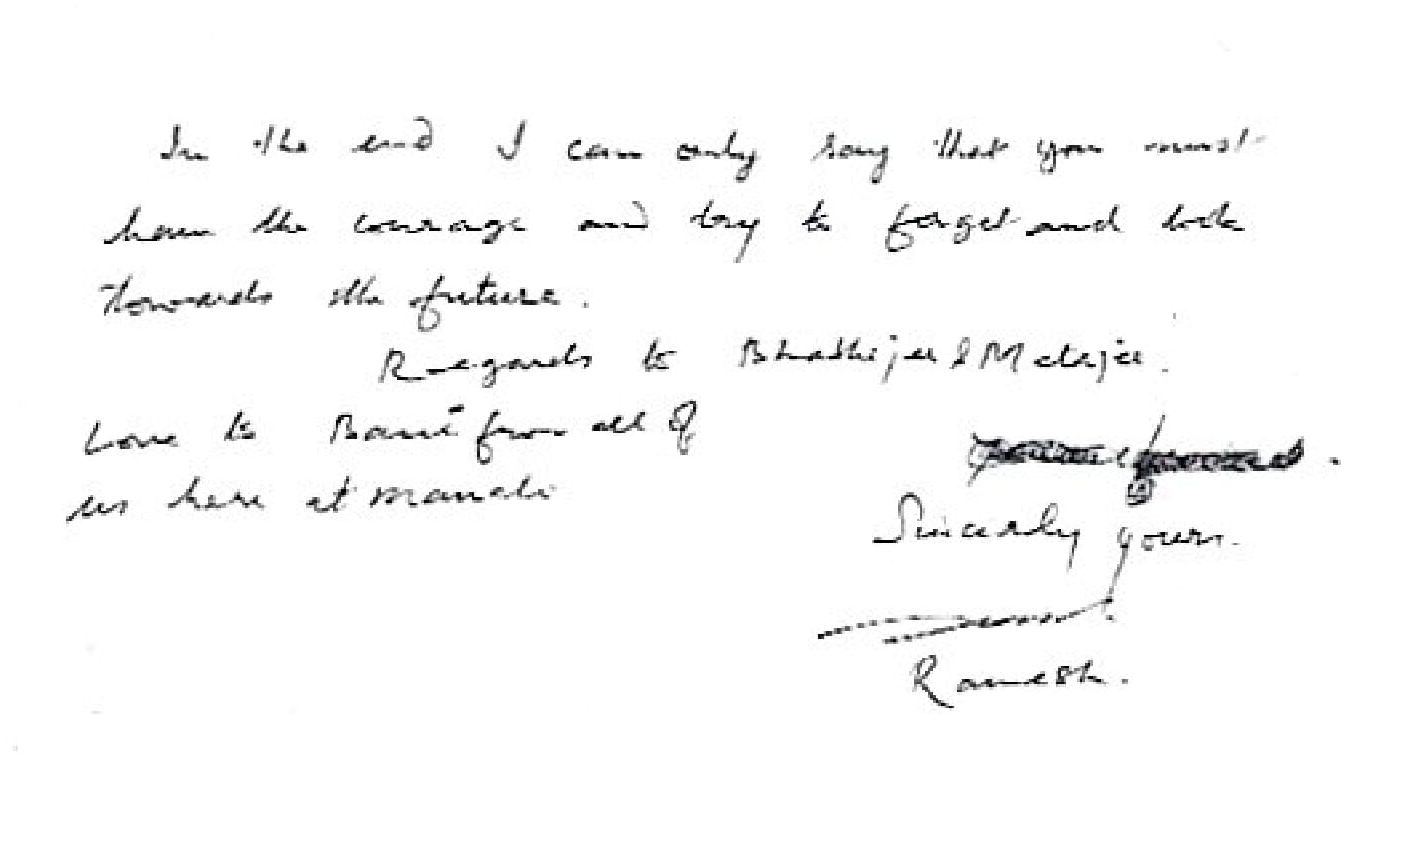 In the end I can only say that you must
have the courage and try to forget and look
towards the future.
Regards to Bhabhijee & Matajee.
Love to Bani from all of
us here at Manali
Sincerely yours.
Ramesh.